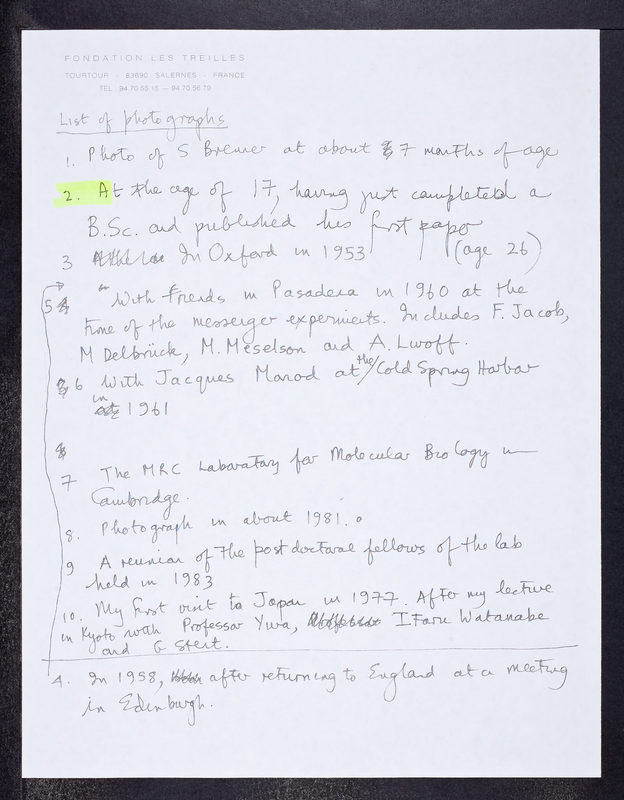 FONDATION LES TREILLES
TOURTOUR - 83690 SALERNES - FRANCE
TEL. 94.70.55.15 — 94.70.56.79
List of photographs
1. Photo of S Brenner at about 7 months of age
2. At the age of 17, having just completed a
B.Sc. and published his first paper
3 In Oxford in 1953 (age 26)
5 "With Friends in Pasadena in 1960 at the
time of the messenger experiments. Includes F. Jacob,
M Delbrück, M. Meselson and A. Lwoff.
6 With Jacques Monod at the Cold Spring Harbor
in 1961
7 The MRC Laboratory for Molecular Biology in
Cambridge.
8. Photograph in about 1981.
9 A reunion of the post doctoral fellows of the lab
held in 1983
10. My first visit to Japan in 1977. After my lecture
in Kyoto with Professor Yura, Itaru Watanabe
and G Stent.
4. In 1958, after returning to England at a meeting
in Edinburgh.